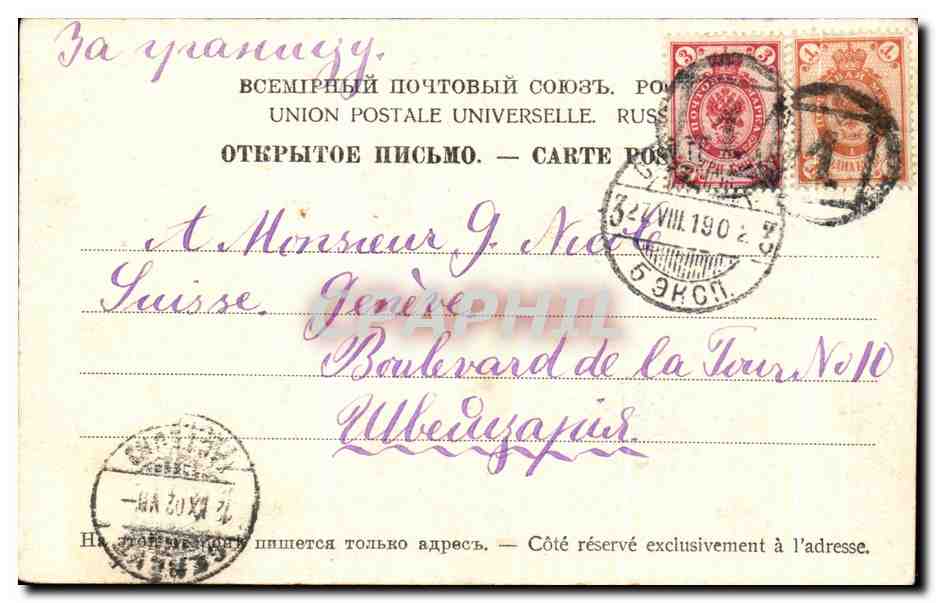 За границу.
ВСЕМІРНЫЙ ПОЧТОВЫЙ СОЮЗЪ.
UNION POSTALE UNIVERSELLE. RUSS
ОТКРЫТОЕ ПИСЬМО. — CARTE POS
3 3
1 1
27 VIII. 190 2
5 ЭКСП.
1
A Monsieur G. Nicole
Suisse. Genève.
CPAPHIL
Boulevard de la Tour No 10
Швейцарія.
На этой пишется только адресъ. — Côté réservé exclusivement à l'adresse.